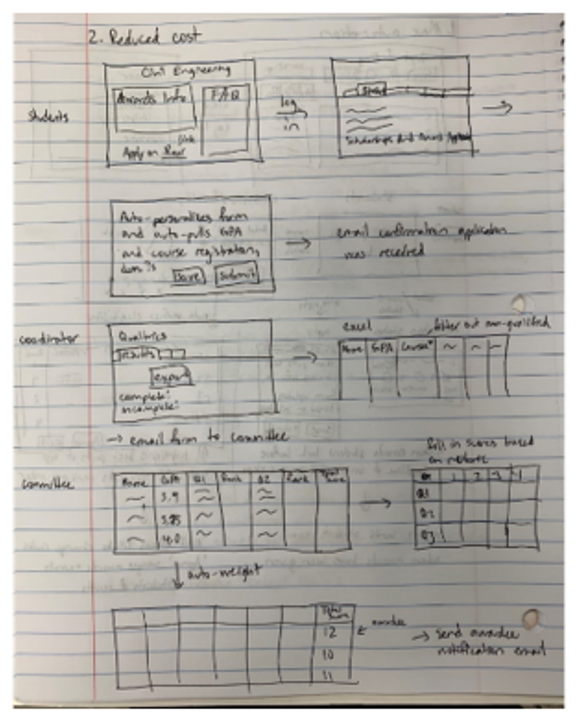 2. Reduced cost
Students
Civil Engineering
Awards Info
FAQ
Click
Apply on Rowe
log
in
Scholarships And Awards
Auto-personalizes form
and auto-pulls GPA
and course registration,
Save
Submit
email confirmation application
was received
coordinator
Qualtrics
results
export
complete:
incomplete:
excel
filter out non-qualified
Name GPA Course
→ email form to committee
fill in scores based
on
committee
Name GPA Q1 Rank Q2 Rank Total Score
3.9
3.85
4.0
1 2 3 4
Q1
Q2
Q3
auto-weight
Total Score
12
10
11
awardee
→ send awardee
notification email